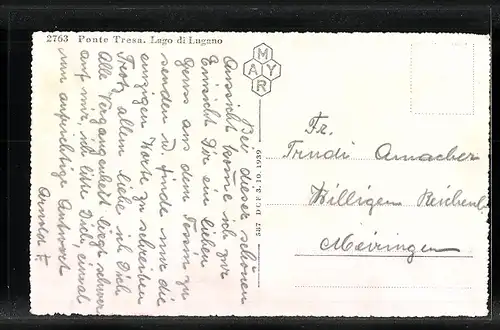 2763 Ponte Tresa. Lago di Lugano
MAYR
Bei dieser schönen
Aussicht komme ich zur
Einsicht Dir ein lieben
Gruss aus dem Tessin zu
senden u. finde nur die
einzigen Worte zu schreiben
Trotz allem liebe ich Dich
Alle Vergangenheit liegt schwer
auf mir, ich bitte Dich, einmal
um aufrichtige Antwort
Arnold
587 DCF 3.10.1939
Fr.
Trudi Amacher
Willigen Reichenb
Meiringen